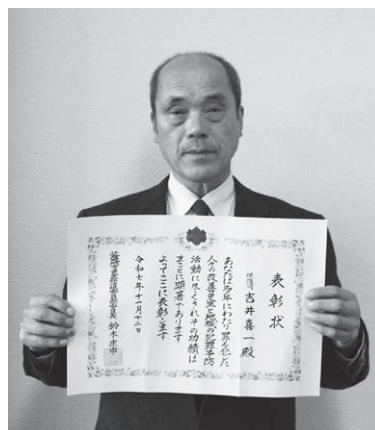 表彰状
保護司 吉井喜一殿
あなたは多年にわたり罪を犯した
人の改善更生と地域の犯罪予防
活動に尽くされその功績は
まことに顕著であります
よってここに表彰します
令和七年十一月十二日
鈴木忠市